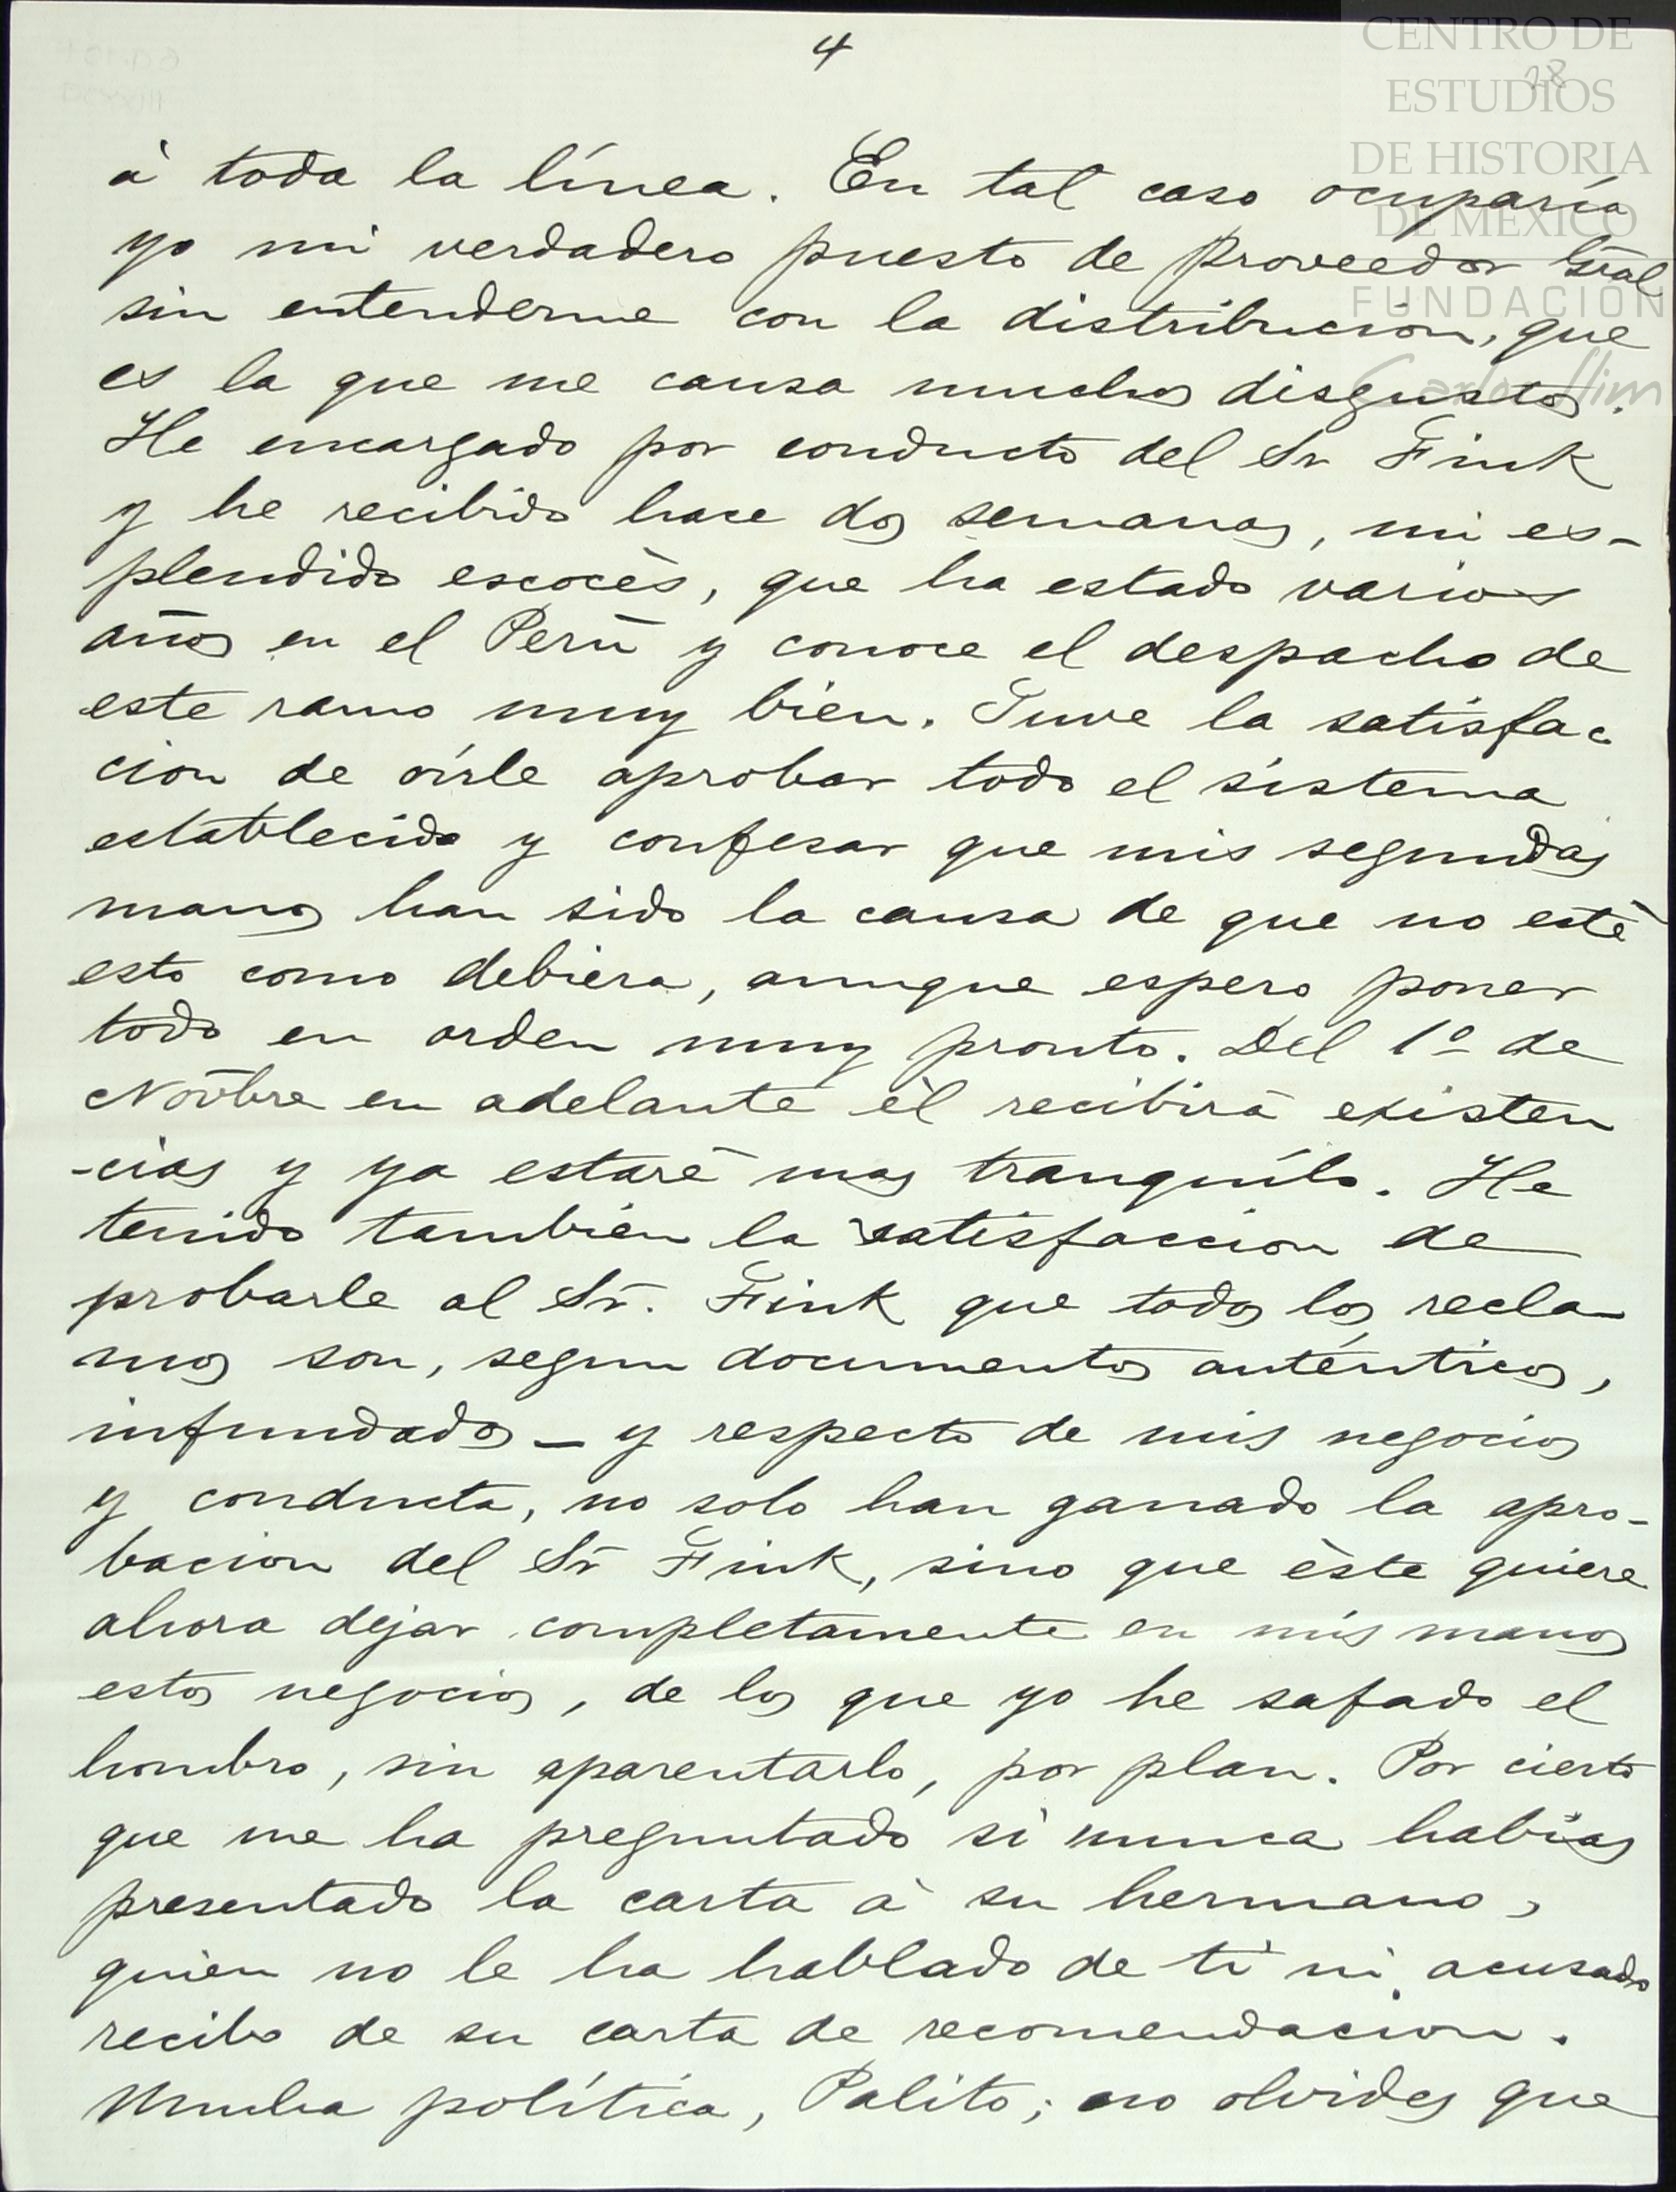 4
28
CENTRO DE
ESTUDIOS
DE HISTORIA
DE MÉXICO
FUNDACIÓN
Carlos Slim
à toda la línea. En tal caso ocuparía
yo mi verdadero puesto de Proveedor Gral
sin entenderme con la distribucion, que
es la que me causa muchos disgustos.
He encargado por conducto del Sr Fink
y he recibido hace dos semanas, mi es-
plendido escocès, que ha estado varios
años en el Perú y conoce el despacho de
este ramo muy bien. Tuve la satisfac
cion de oírle aprobar todo el sistema
establecido y confesar que mis segundas
manos han sido la causa de que no esté
esto como debiera, aunque espero poner
todo en orden muy pronto. Del 1º de
Novbre en adelante èl recibirá existen
-cias y ya estaré mas tranquílo. He
tenido tambien la satisfaccion de
probarle al Sr. Fink que todos los recla
mos son, segun documentos auténticos,
infundados _ y respecto de mis negocios
y conducta, no solo han ganado la apro-
bacion del Sr Fink, sino que èste quiere
ahora dejar completamente en mis manos
estos negocios, de los que yo he safado el
hombro, sin aparentarlo, por plan. Por cierto
que me ha preguntado si nunca habías
presentado la carta à su hermano,
quien no le ha hablado de tí ni acusado
recibo de su carta de recomendacion.
Mucha política, Palito; no olvides que